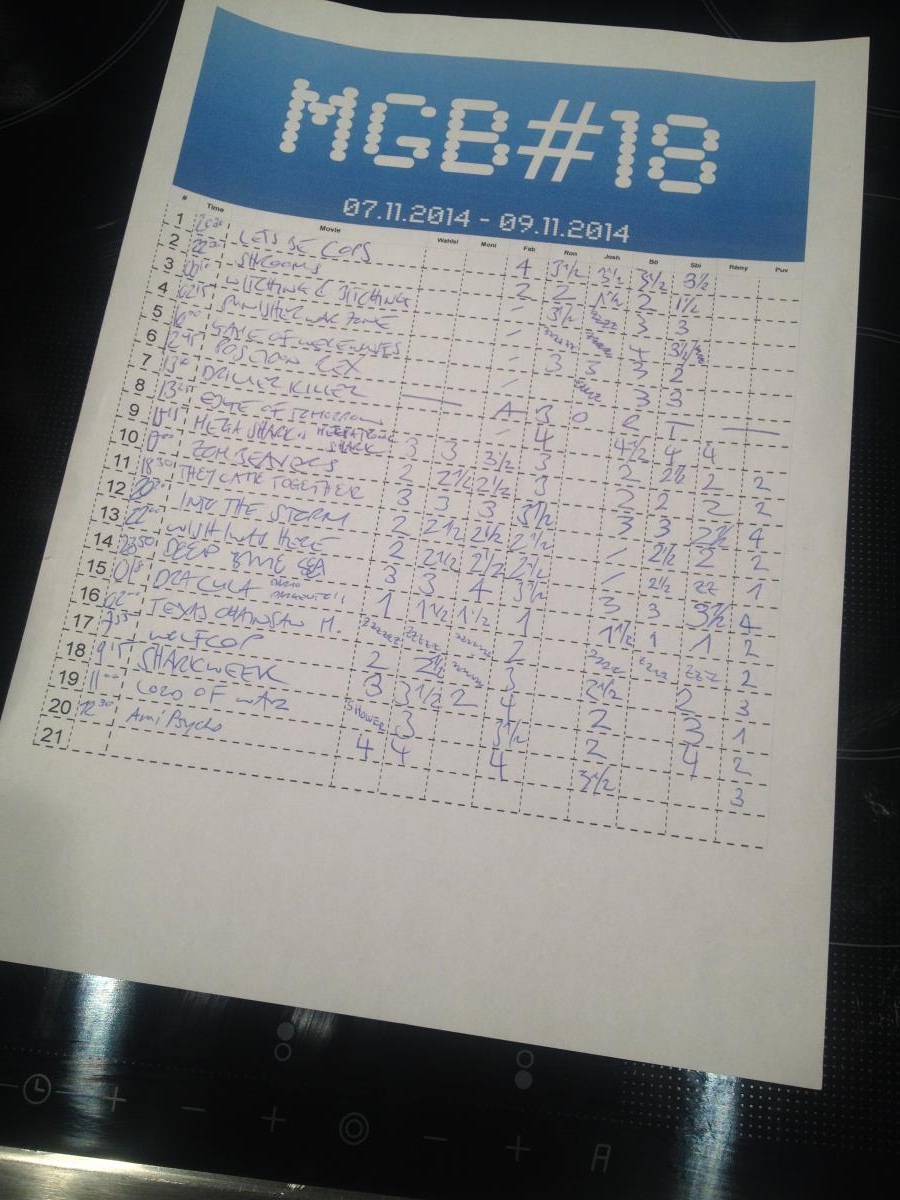 MGB#18
07.11.2014 - 09.11.2014
# Time Movie Wahlsi Moni Fab Ron Josh Bö Sbi Rémy Puv
1 LETS BE COPS 4 3 1/2 3 1/2 3 1/2 3 1/2
2 SHROOMS 2 2 1 1/2 2 1 1/2
3 WITCHING & BITCHING - 3 1/2 zzzz 3 3
4 PUNISHER WAR ZONE -
5 GAME OF WEREWOLVES - 3 3 3 2
6 POSEIDON REX - 3 3
7 DRILLER KILLER
8 EDGE OF TOMORROW - 4 4 1/2 4 4
9 MEGA SHARK VS MECHATRONIC SHARK 3 3 3 1/2 3 2 2 1/2 2 2
10 ZOMBEAVERS 2 2 1/2 2 1/2 3 2 2 2 2
11 18 30 THEY CAME TOGETHER 3 3 3 3 1/2 3 3 2 1/2 4
12 INTO THE STORM 2 2 1/2 2 1/2 2 1/2 / 2 1/2 2
13 22 00 WISH I WAS HERE 2 2 1/2 2 1/2 2 1/2 / 2 1/2 zz 1
14 23 50 DEEP 3 3 4 3 1/2 3 3 3 1/2 4
15 DRACULA DARIO ARGENTO'S 1 1 1/2 1 1/2 1 1 1/2 1 1 2
16 TEXAS CHAINSAW M. zzzzz zzzzz zzzzz 2 zzzz zzzz zzz 2
17 7 55 WOLFCOP 2 2 1/2 3 2 1/2 2 3
18 9 15 SHARKWEEK 3 3 1/2 2 4 2 3 1
19 11 00 LORD OF WAR SHOWER 3 3 1/2 2 4 2
20 12 30 Ami Psycho 4 4 4 3 1/2 3
21